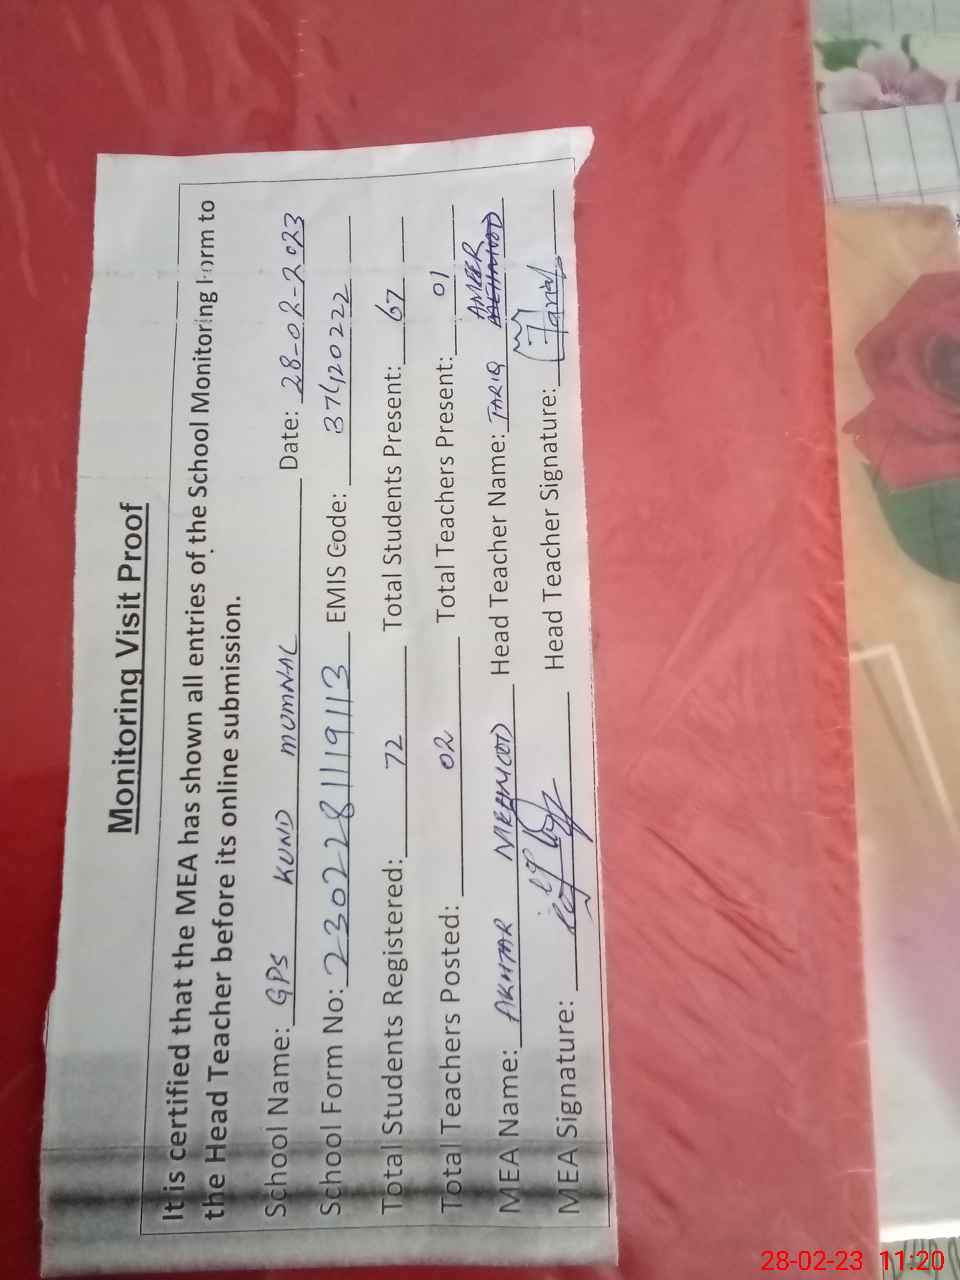 Monitoring Visit Proof
It is certified that the MEA has shown all entries of the School Monitoring Form to
the Head Teacher before its online submission.
School Name: GPS KUND MOMNAL Date: 28-02-2023
School Form No: 2302281119113 EMIS Code: 37420222
Total Students Registered: 72 Total Students Present: 67
Total Teachers Posted: 02 Total Teachers Present: 01
MEA Name: AKHTAR MEHMOOD Head Teacher Name: TARIQ AMEER
MEA Signature: Head Teacher Signature: Tariq
28-02-23 11:20